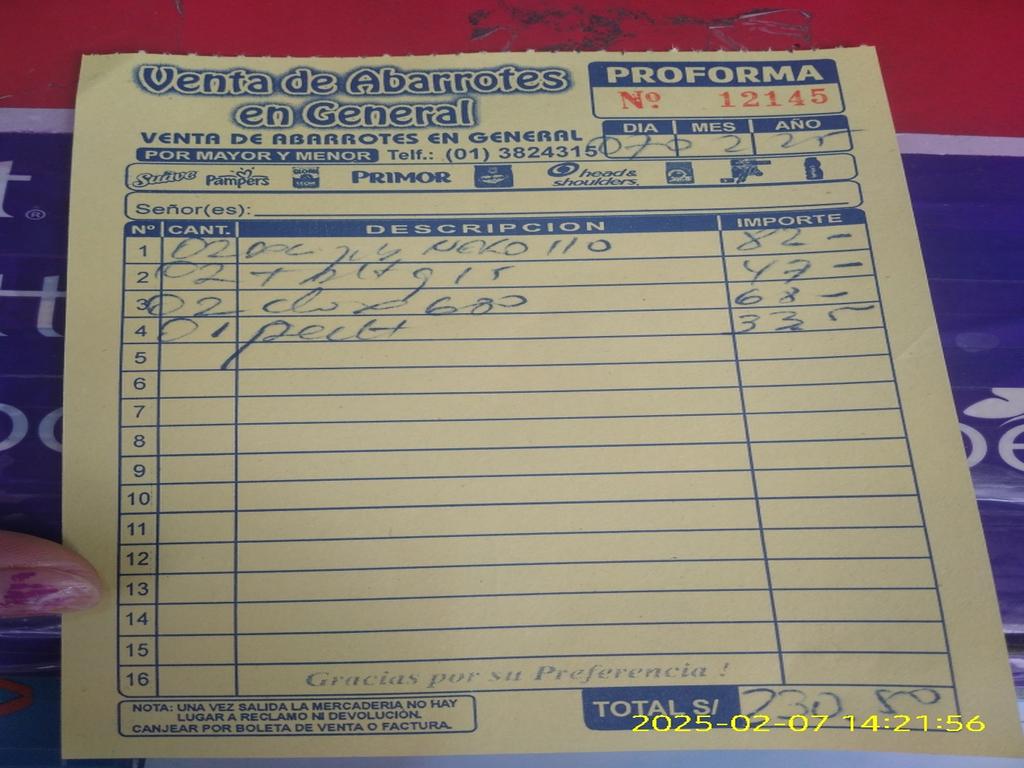 Venta de Abarrotes
en General
VENTA DE ABARROTES EN GENERAL
POR MAYOR Y MENOR Telf.: (01) 3824315
PROFORMA
Nº 12145
DIA MES AÑO
07 02 25
Suave Pampers PRIMOR head & shoulders.
Señor(es):
Nº CANT. DESCRIPCION IMPORTE
1 02 NEKO 110 82 -
2 02 47 -
3 02 680 68 -
4 01 33 5
5
6
7
8
9
10
11
12
13
14
15
16
Gracias por su Preferencia !
NOTA: UNA VEZ SALIDA LA MERCADERIA NO HAY
LUGAR A RECLAMO NI DEVOLUCION.
CANJEAR POR BOLETA DE VENTA O FACTURA.
TOTAL S/ 230 50
2025-02-07 14:21:56